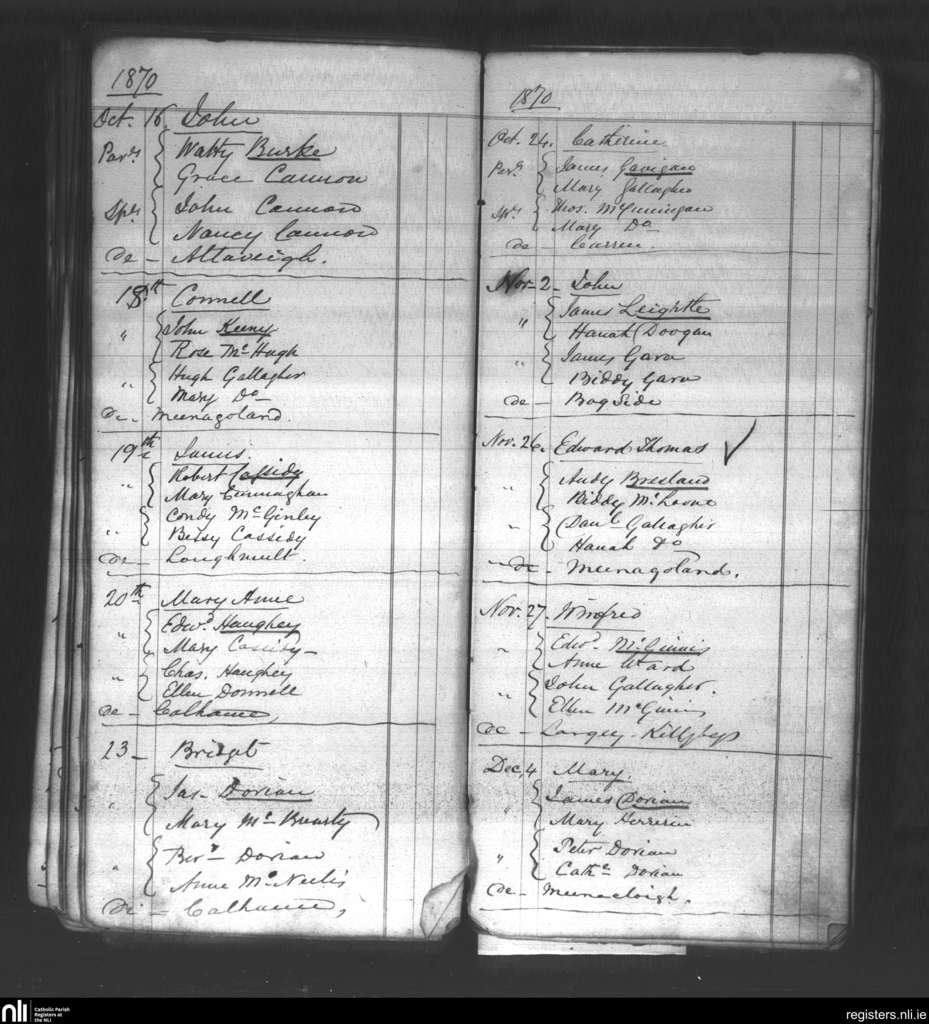 1870
Oct. 16 John
Par.ts Watty Burke
Grace Cannon
Sp.rs John Cannon
Nancy Cannon
de - Altaveigh.
18th Connell
" John Keeny
Rose Mc Hugh
" Hugh Gallagher
Mary Do
de - Meenagoland.
19th James.
" Robert Cassidy
Mary Cunnaghan
" Condy McGinley
Betsy Cassidy
de - Loughmult.
20th Mary Anne
" Edwd. Haughey
Mary Cassidy
" Chas. Haughey
Ellen Donnell
de - Calhame,
23 - Bridget
" Jas. Dorian
Mary Mc
" Dorian
Anne McNeelis
de - Calhame,
1870
Oct. 24. Catherine
Par.ts James Gavigan
Mary Gallagher
Sp.rs Thos. McGinnigan
Mary Do
de - Carrin.
Nov - 2 - John
" James
Hanah Doogan
" James Gara
Biddy Gara
de - Bogside
Nov. 26. Edward Thomas ✓
" Andy Bresland
Biddy McLoone
" Danl. Gallagher
Hanah Do
de - Meenagoland.
Nov. 27. Winifred
" Edwd. McGinnis
Anne Ward
" John Gallagher.
Ellen McGinnis
de - Largey - Killybegs
Dec. 4 Mary.
" James Dorian
Mary
" Peter Dorian
Cathe Dorian
de -
nli
Catholic Parish
Registers at
the NLI
registers.nli.ie